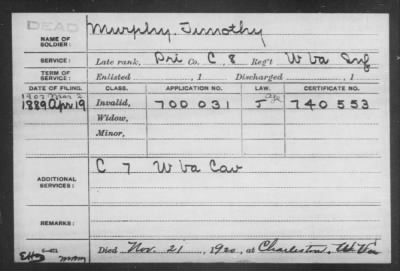 DEAD
NAME OF SOLDIER: Murphy, Timothy
SERVICE: Late rank, Pri Co. C, 8 Reg't W Va Inf
TERM OF SERVICE: Enlisted , 1 Discharged , 1
DATE OF FILING. CLASS. APPLICATION NO. LAW. CERTIFICATE NO.
1907 Mar 2
1889 Apr 19 Invalid, 700 031 J 740 553
Widow,
Minor,
C 7 W Va Cav
ADDITIONAL SERVICES:
REMARKS:
Died Nov. 21, 1920, at Charleston, W Va